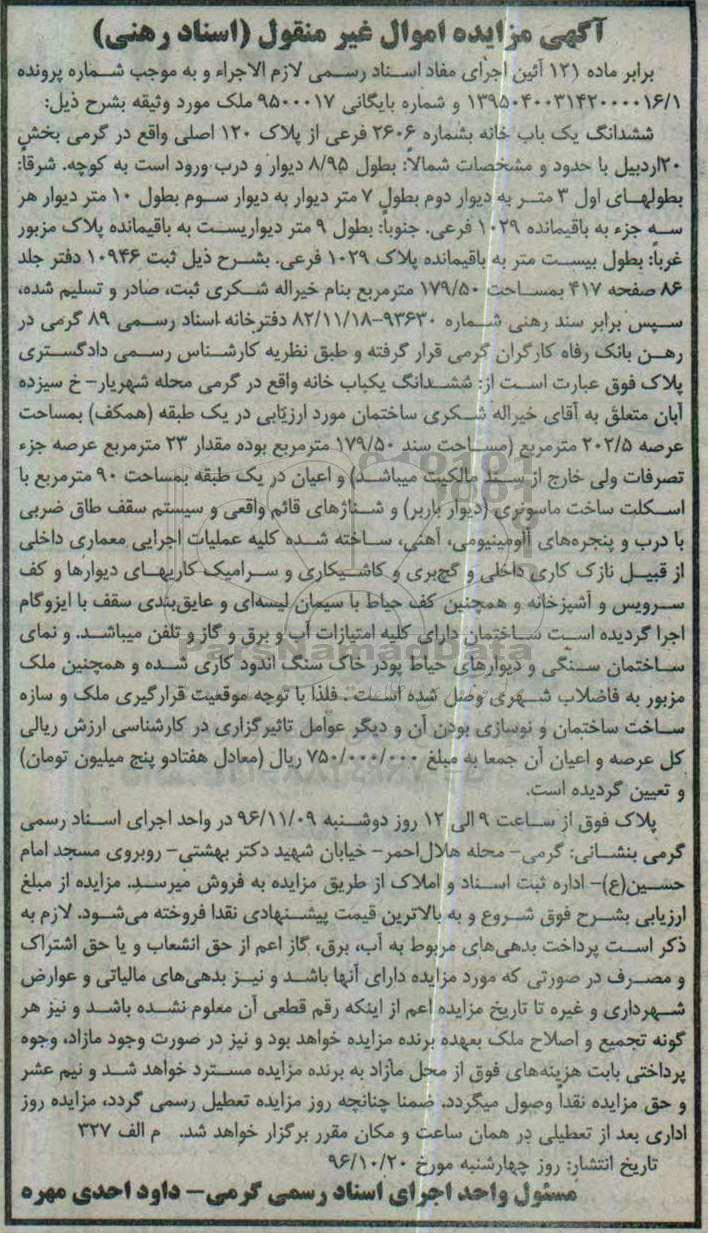 آگهی مزایده اموال غیر منقول (اسناد رهنی)
برابر ماده ۱۲۱ آئین اجرای مفاد اسناد رسمی لازم الاجراء و به موجب شماره پرونده
۱۳۹۵۰۴۰۰۳۱۴۲۰۰۰۰۱۶/۱ و شماره بایگانی ۹۵۰۰۰۱۷ ملک مورد وثیقه بشرح ذیل:
ششدانگ یک باب خانه بشماره ۲۶۰۶ فرعی از پلاک ۱۲۰ اصلی واقع در گرمی بخش
۲۰اردبیل با حدود و مشخصات شمالاً: بطول ۸/۹۵ دیوار و درب ورود است به کوچه. شرقا:
بطولهای اول ۳ متر به دیوار دوم بطول ۷ متر دیوار به دیوار سوم بطول ۱۰ متر دیوار هر
سه جزء به باقیمانده ۱۰۲۹ فرعی. جنوباً: بطول ۹ متر دیواریست به باقیمانده پلاک مزبور
غرباً: بطول بیست متر به باقیمانده پلاک ۱۰۲۹ فرعی. بشرح ذیل ثبت ۱۰۹۴۶ دفتر جلد
۸۶ صفحه ۴۱۷ بمساحت ۱۷۹/۵۰ مترمربع بنام خیراله شکری ثبت، صادر و تسلیم شده،
سپس برابر سند رهنی شماره ۹۳۶۳۰-۸۲/۱۱/۱۸ دفترخانه اسناد رسمی ۸۹ گرمی در
رهن بانک رفاه کارگران گرمی قرار گرفته و طبق نظریه کارشناس رسمی دادگستری
پلاک فوق عبارت است از: ششدانگ یکباب خانه واقع در گرمی محله شهریار- خ سیزده
آبان متعلق به آقای خیراله شکری ساختمان مورد ارزیابی در یک طبقه (همکف) بمساحت
عرصه ۲۰۲/۵ مترمربع (مساحت سند ۱۷۹/۵۰ مترمربع بوده مقدار ۲۳ مترمربع عرصه جزء
تصرفات ولی خارج از سند مالکیت میباشد) و اعیان در یک طبقه بمساحت ۹۰ مترمربع با
اسکلت ساخت ماسونری (دیوار باربر) و شناژهای قائم واقعی و سیستم سقف طاق ضربی
با درب و پنجره‌های آلومینیومی، آهنی، ساخته شده کلیه عملیات اجرایی معماری داخلی
از قبیل نازک کاری داخلی و گچ‌بری و کاشیکاری و سرامیک کاریهای دیوارها و کف
سرویس و آشپزخانه و همچنین کف حیاط با سیمان لیسه‌ای و عایق‌بندی سقف با ایزوگام
اجرا گردیده است ساختمان دارای کلیه امتیازات آب و برق و گاز و تلفن میباشد. و نمای
ساختمان سنگی و دیوارهای حیاط پودر خاک سنگ اندود کاری شده و همچنین ملک
مزبور به فاضلاب شهری وصل شده است. فلذا با توجه موقعیت قرارگیری ملک و سازه
ساخت ساختمان و نوسازی بودن آن و دیگر عوامل تاثیرگزاری در کارشناسی ارزش ریالی
کل عرصه و اعیان آن جمعا به مبلغ ۷۵۰/۰۰۰/۰۰۰ ریال (معادل هفتادو پنج میلیون تومان)
و تعیین گردیده است.
پلاک فوق از ساعت ۹ الی ۱۲ روز دوشنبه ۹۶/۱۱/۰۹ در واحد اجرای اسناد رسمی
گرمی بنشانی: گرمی- محله هلال‌احمر- خیابان شهید دکتر بهشتی- روبروی مسجد امام
حسین(ع)- اداره ثبت اسناد و املاک از طریق مزایده به فروش میرسد. مزایده از مبلغ
ارزیابی بشرح فوق شروع و به بالاترین قیمت پیشنهادی نقدا فروخته می‌شود. لازم به
ذکر است پرداخت بدهی‌های مربوط به آب، برق، گاز اعم از حق انشعاب و یا حق اشتراک
و مصرف در صورتی که مورد مزایده دارای آنها باشد و نیز بدهی‌های مالیاتی و عوارض
شهرداری و غیره تا تاریخ مزایده اعم از اینکه رقم قطعی آن معلوم نشده باشد و نیز هر
گونه تجمیع و اصلاح ملک بعهده برنده مزایده خواهد بود و نیز در صورت وجود مازاد، وجوه
پرداختی بابت هزینه‌های فوق از محل مازاد به برنده مزایده مسترد خواهد شد و نیم عشر
و حق مزایده نقدا وصول میگردد. ضمنا چنانچه روز مزایده تعطیل رسمی گردد، مزایده روز
اداری بعد از تعطیلی در همان ساعت و مکان مقرر برگزار خواهد شد. م الف ۳۲۷
تاریخ انتشار: روز چهارشنبه مورخ ۹۶/۱۰/۲۰
مسئول واحد اجرای اسناد رسمی گرمی- داود احدی مهره
ParsNamadData